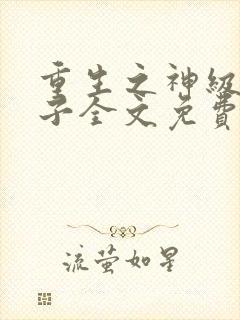 重生之神级
子全文免费
流萤如星